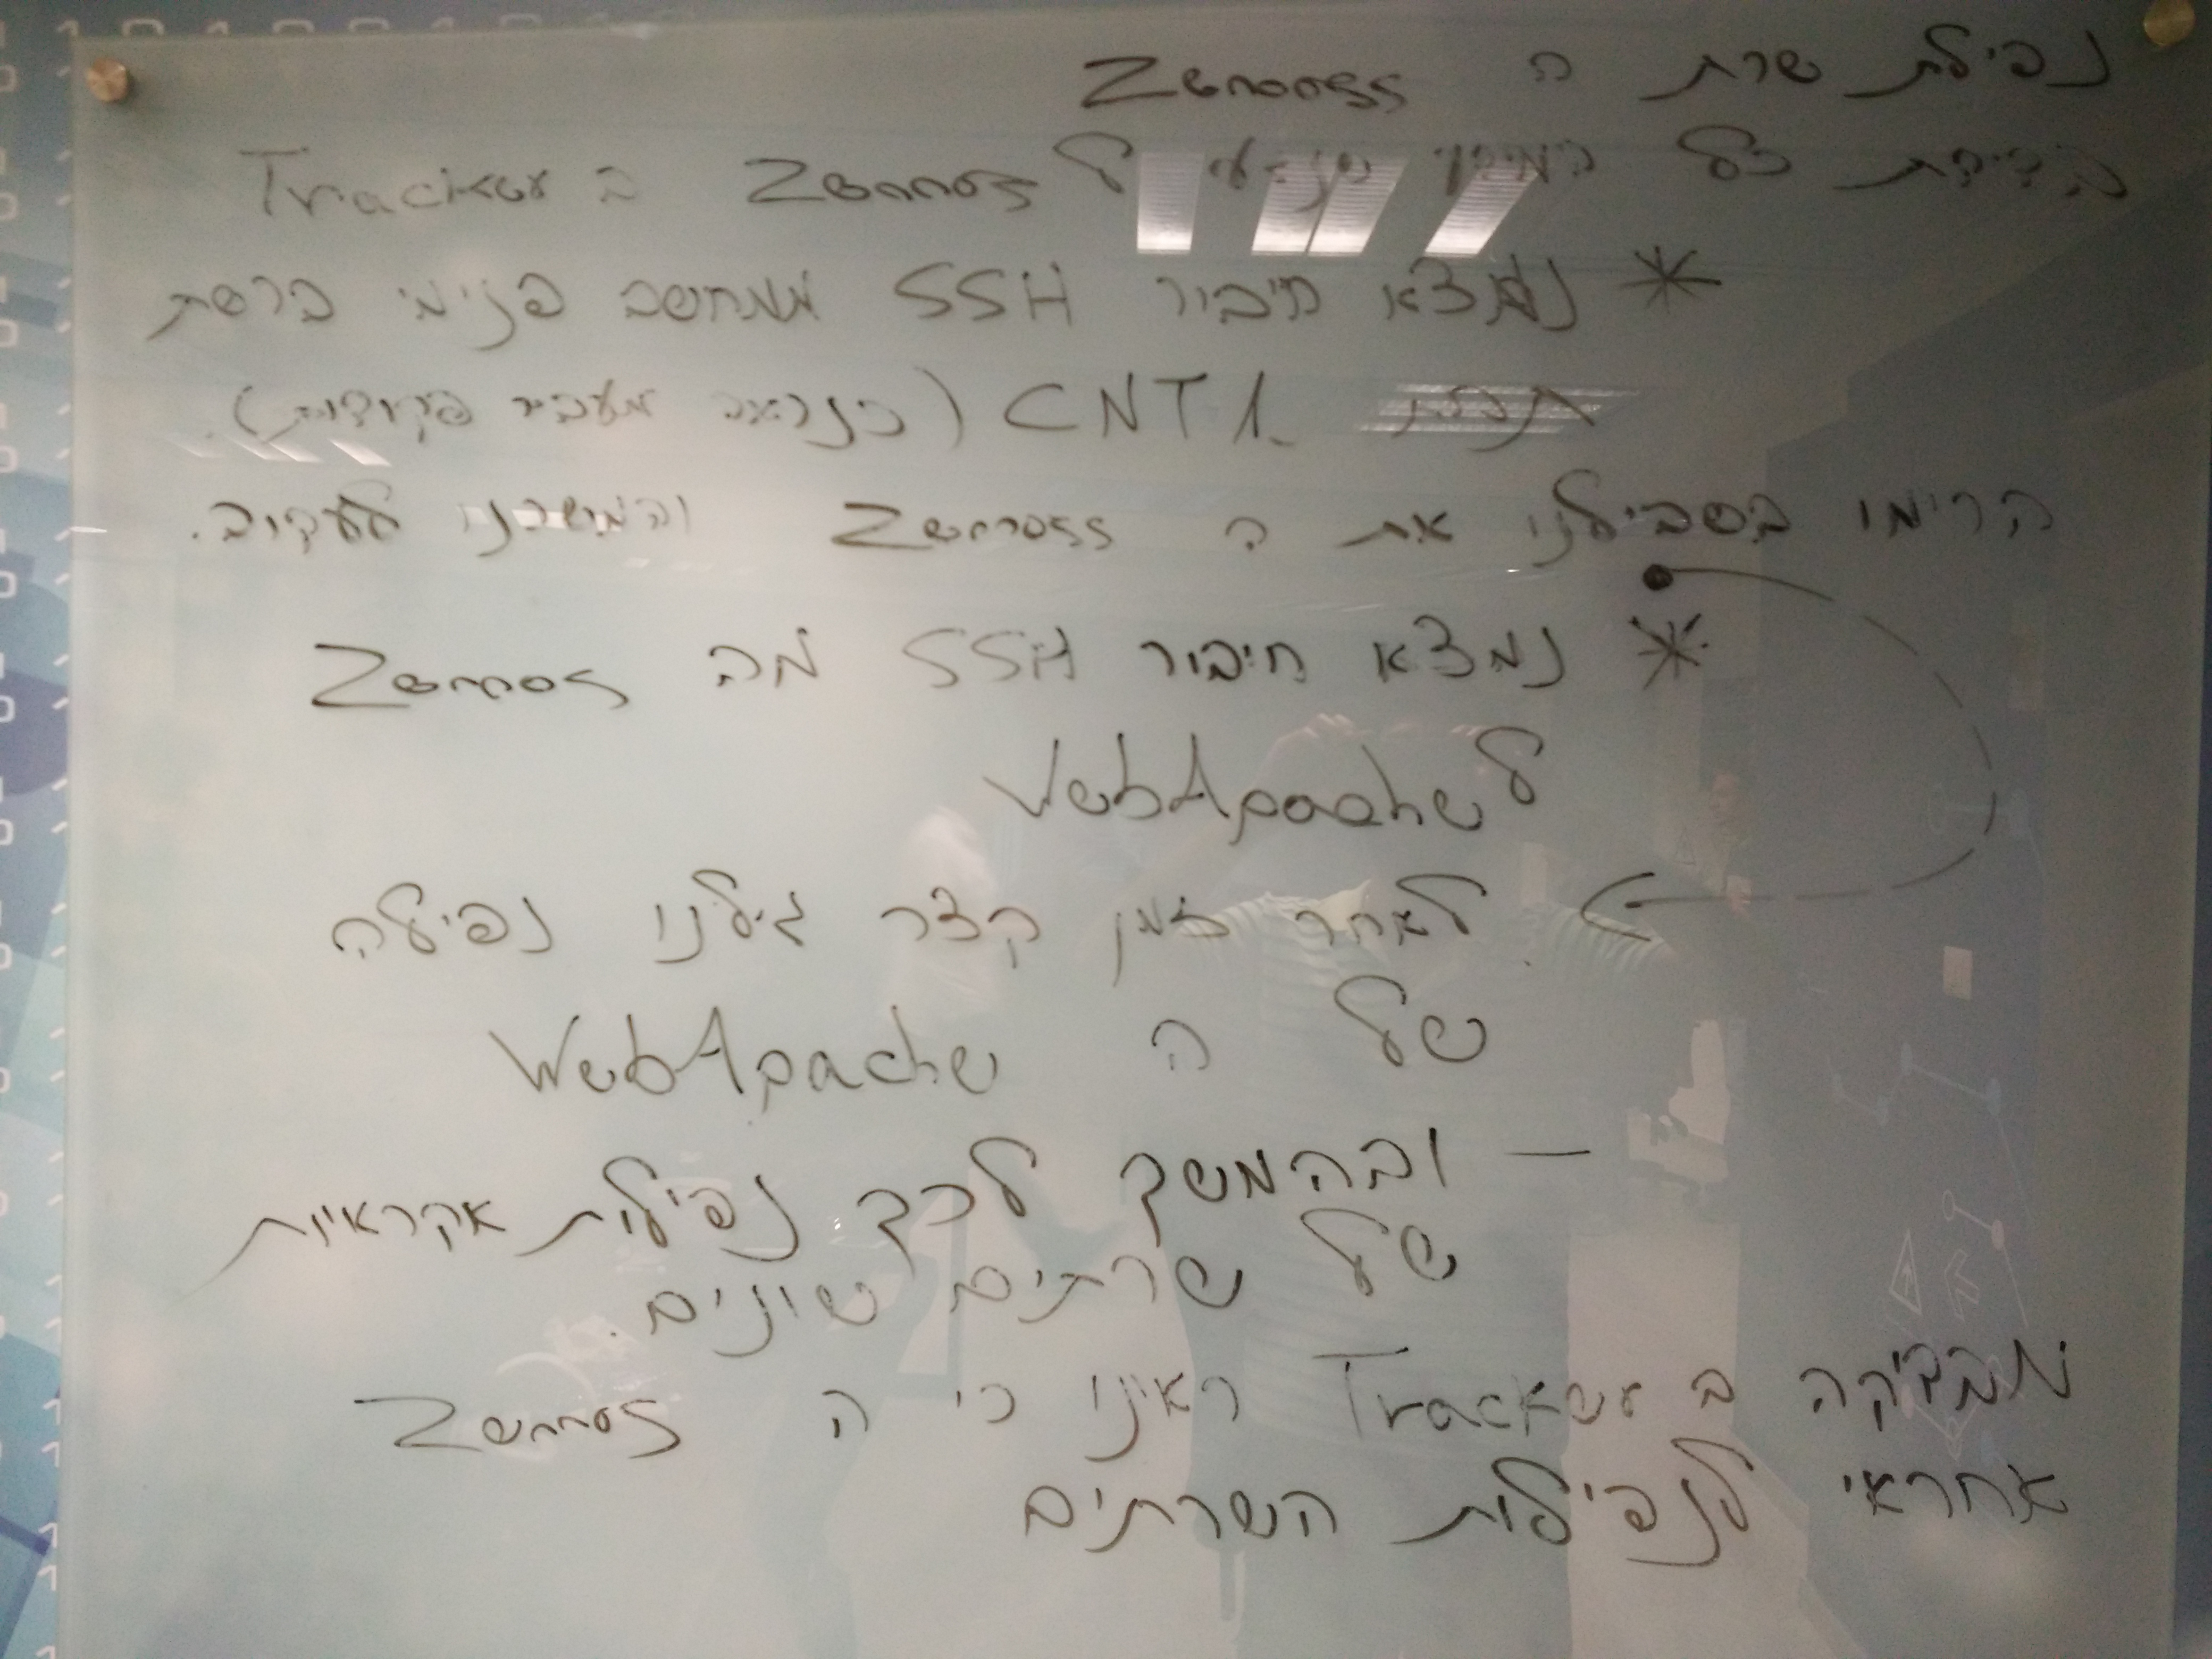 נפילת שרת ה Zenoss
בדיקת כל המידע ל Zennos ב Tracker
* נמצא חיבור SSH ממחשב פנימי ברשת
CNT1 (כנראה מעביר פקודות).
הרימו בשבילנו את ה Zennoss והמשכנו לעקוב.
* נמצא חיבור SSH מה Zennos
ל WebApache
לאחר זמן קצר גילנו נפילה
של ה WebApache
— ובהמשך לכך נפילות אקראיות
של שרתים שונים.
מבדיקה ב Tracker ראינו כי ה Zennos
אחראי לנפילות השרתים